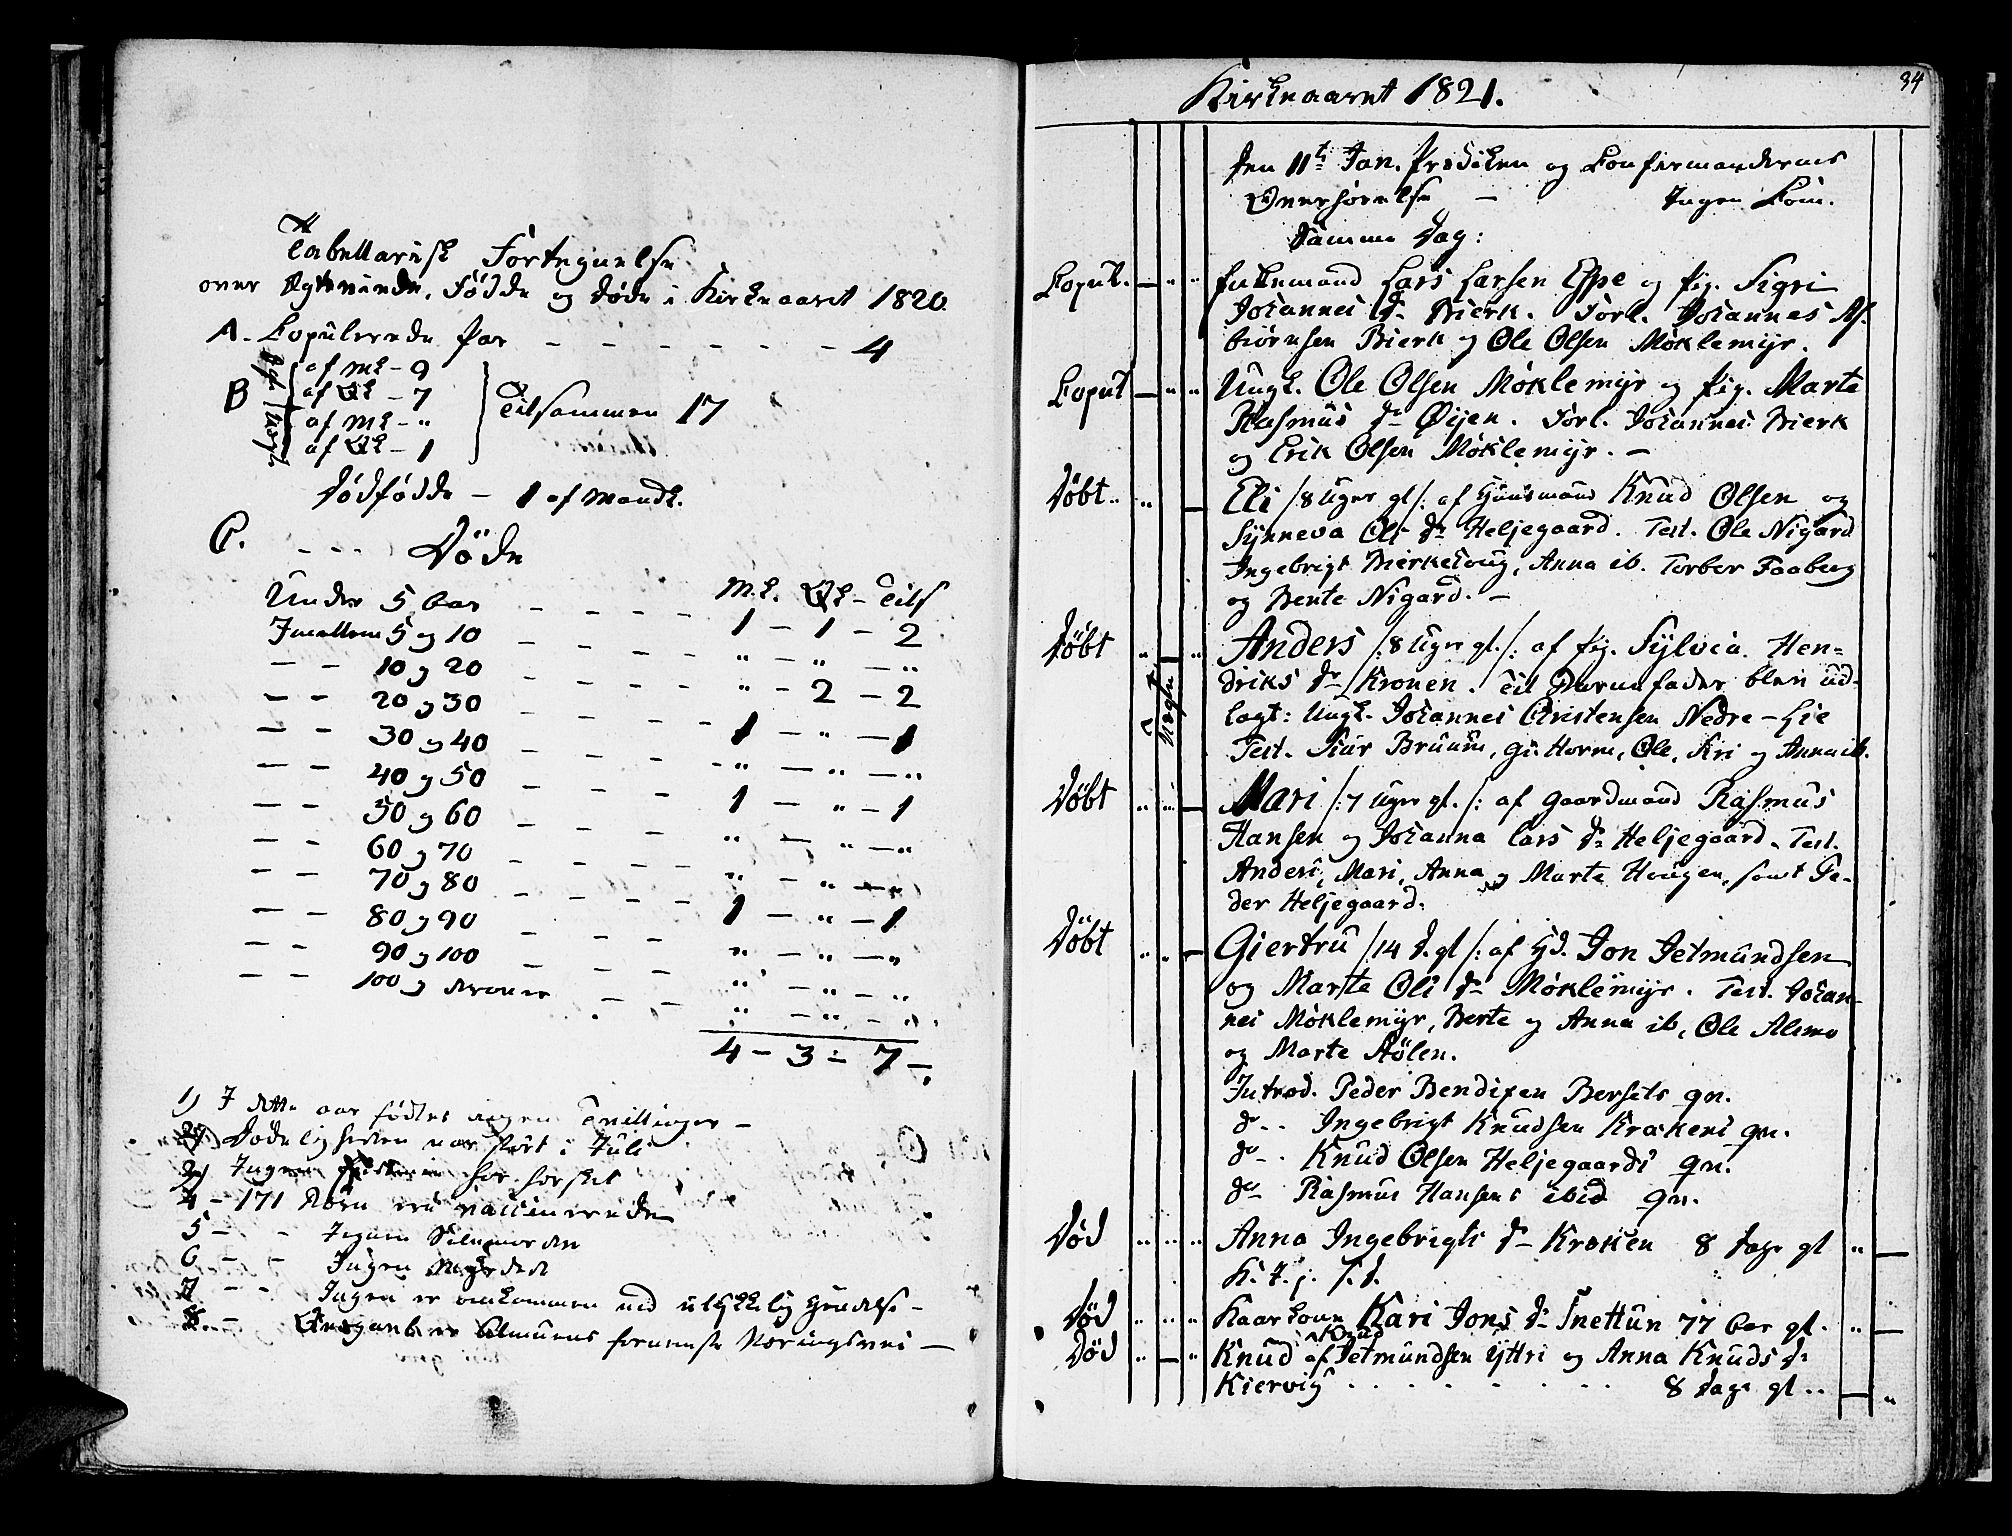 Tabellarisk Fortegnelse
over Ægteviede, Fødde og Døde i Kirkeaaret 1820.
A. Copulerede Par - - - - - - - 4
B Ægt. af Mk - 9
af Qk - 7
Uægt. af Mk - "
af Qk - 1
Tilsammen 17
Dødfødde - 1 af Mandk.
C. - - - Døde
M.k. Qk - Tils
Under 5 Aar - - - - 1 - 1 - 2
Imellem 5 og 10 - - - - " - " - "
- - 10 og 20 - - - - " - 2 - 2
- - 20 og 30 - - - - 1 - " - 1
- - 30 og 40 - - - - " - " - "
- - 40 og 50 - - - - 1 - " - 1
- - 50 og 60 - - - - " - " - "
- - 60 og 70 - - - - " - " - "
- - 70 og 80 - - - - 1 - " - 1
- - 80 og 90 - - - - " - " - "
- - 90 og 100 - - - - " - " - "
- - 100 og derover - - - " - " - "
4 - 3 - 7 -
1) I dette aar fødtes ingen Tvillinger -
2) Dødeligheden var størst i Juli
3) Ingen har hersket
4 - 171 Børn ere vaccinerede
5 - - Ingen Selvmorder
6 - - Ingen Myrdede
7 - - Ingen er omkommen ved ulykkelig Hendelse -
8 - Almuens fornemste Næringsvei -
34
Kirkeaaret 1821.
Den 11te Jan. Prædiken og Confirmandernes
Overhørelse - Ingen Com.
Samme Dag:
Copul. - " " Enkemand Lars Larsen Eppe og Pig. Sigri
Johannes Dr Bierk. Forl. Johannes As-
biørnsen Bierk og Ole Olsen Møklemyr.
Copul - " " Ungk. Ole Olsen Møklemyr og Pig. Marte
Rasmus Dr Øyen. Forl. Johannes Bierk
og Erik Olsen Møklemyr. -
Døbt " " - Eli /8 Uger gl/: af Huusmand Knud Olsen og
Synneva Ols Dr Heljegaard. Test. Ole Nigard
Ingebrigt Bierkehoug, Anna ib. Torber Faaberg
og Bente Nigard. -
Døbt " - " Anders /:8 Uger gl./: af Pig. Sylvia Hen-
Uægte
driks Dr Kronen. Til Barnefader blev ud-
lagt: Ungk. Johannes Christensen Nedre-Lie
Test. Siur Bruum, Ole, Kri og Anna ib.
Døbt " " - Mari /:7 Uger gl./: af Gaardmand Rasmus
Hansen og Johanna Lars Dr Heljegaard. Test.
Anders, Mari, Anna og Marte Hougen, samt Pe-
der Heljegaard.
Døbt " " - Giertru /14 D. gl/: af Hd. Jon Jetmundsen
og Marte Ols Dr Møklemyr. Test. Johan-
nes Møklemyr, Berte og Anna ib, Ole Alsmo
og Marte Stølen.
Introd. Peder Bendixen Bersets qn.
do - . Ingebrigt Knudsen Krokens qn.
do - . Knud Olsen Heljegaards qn.
do - Rasmus Hansens ibid qn.
Død " " " Anna Ingebrigts Dr Kroken 8 Dage gl " -
K. J. p. s. d.
Død " " " Kaarkone Kari Jons Dr Snettun 77 Aar gl. " -
Død " - " Knud af Knud Jetmundsen Yttri og Anna Knuds Dr
Kiervig . . . . . . . 8 Dage gl " - "